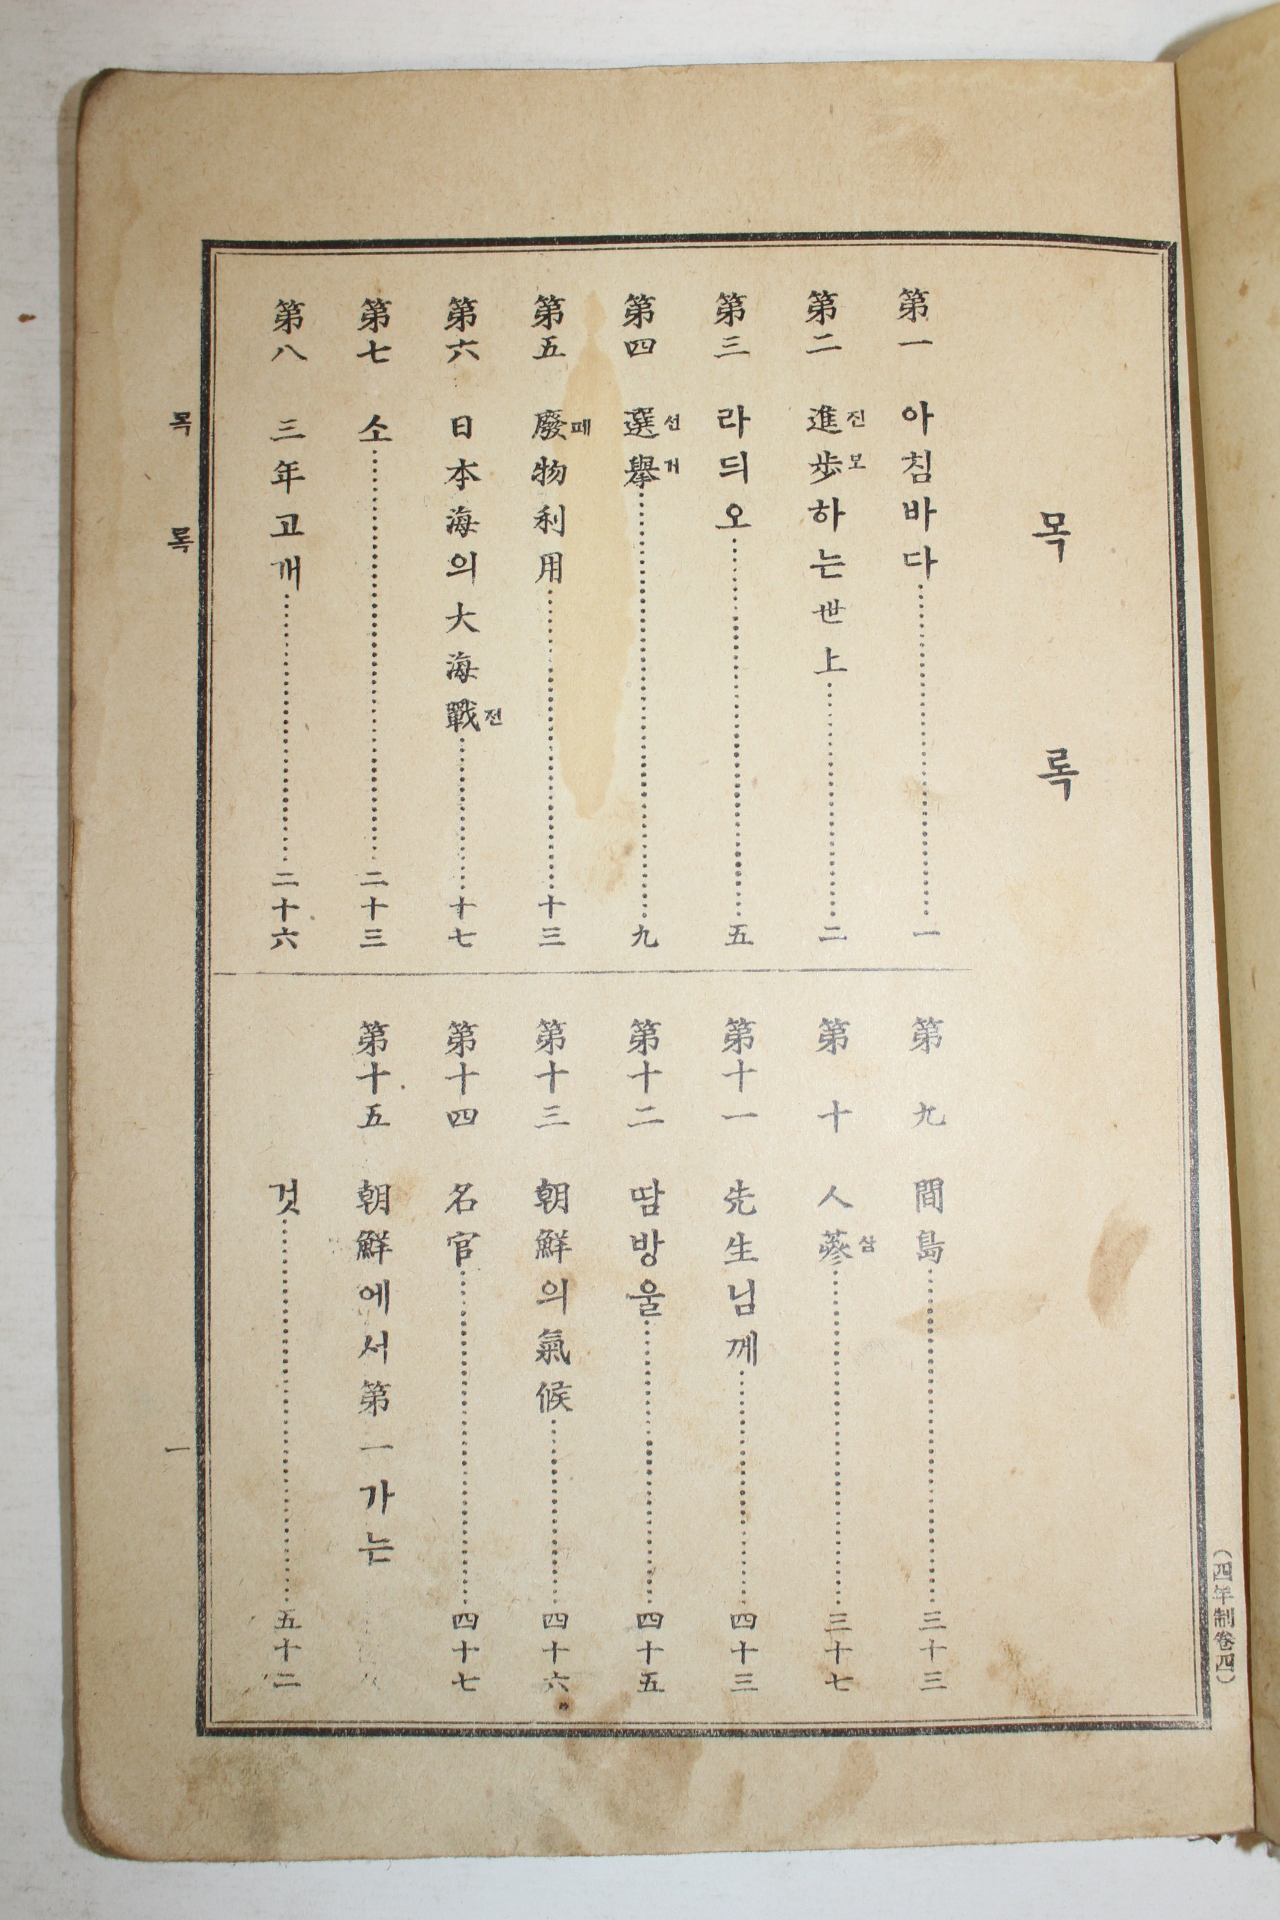 목록
第一 아침바다……一
第二 進진步보하는世上……二
第三 라듸오……五
第四 選선擧거……九
第五 廢폐物利用……十三
第六 日本海의大海戰전……十七
第七 소……二十三
第八 三年고개……二十六
第九 間島……三十三
第十 人蔘삼……三十七
第十一 先生님께……四十三
第十二 땀방울……四十五
第十三 朝鮮의氣候……四十六
第十四 名官……四十七
第十五 朝鮮에서第一가는
것……五十二
목록 一
(四年制卷四)